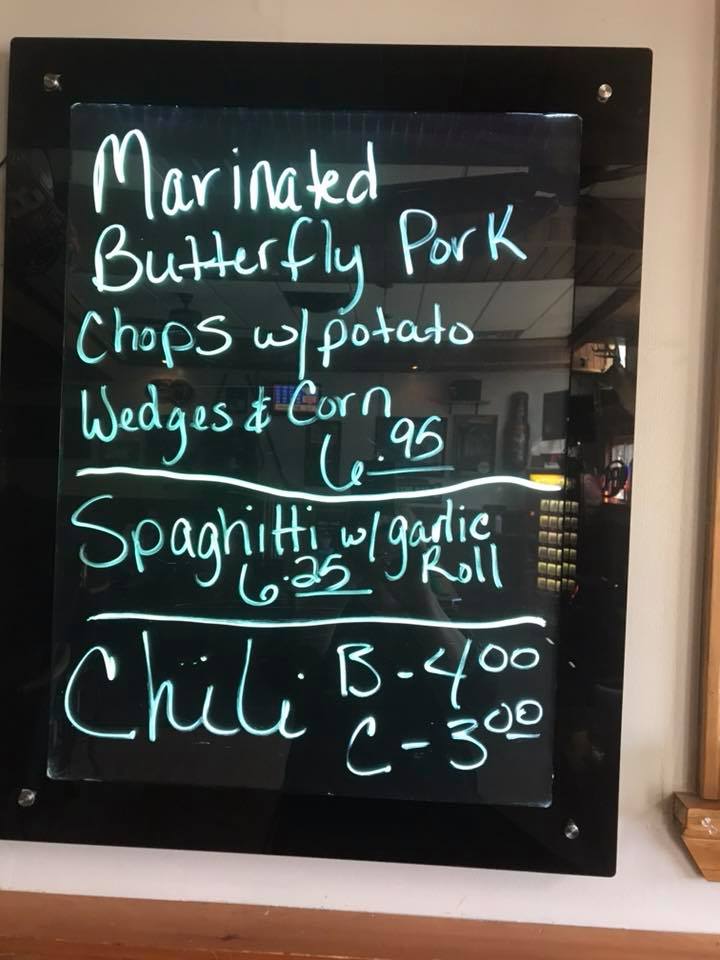 Marinated
Butterfly Pork
Chops w/potato
Wedges & Corn
6.95
Spaghitti w/garlic
6.25 Roll
Chili B-4.00
C-3.00